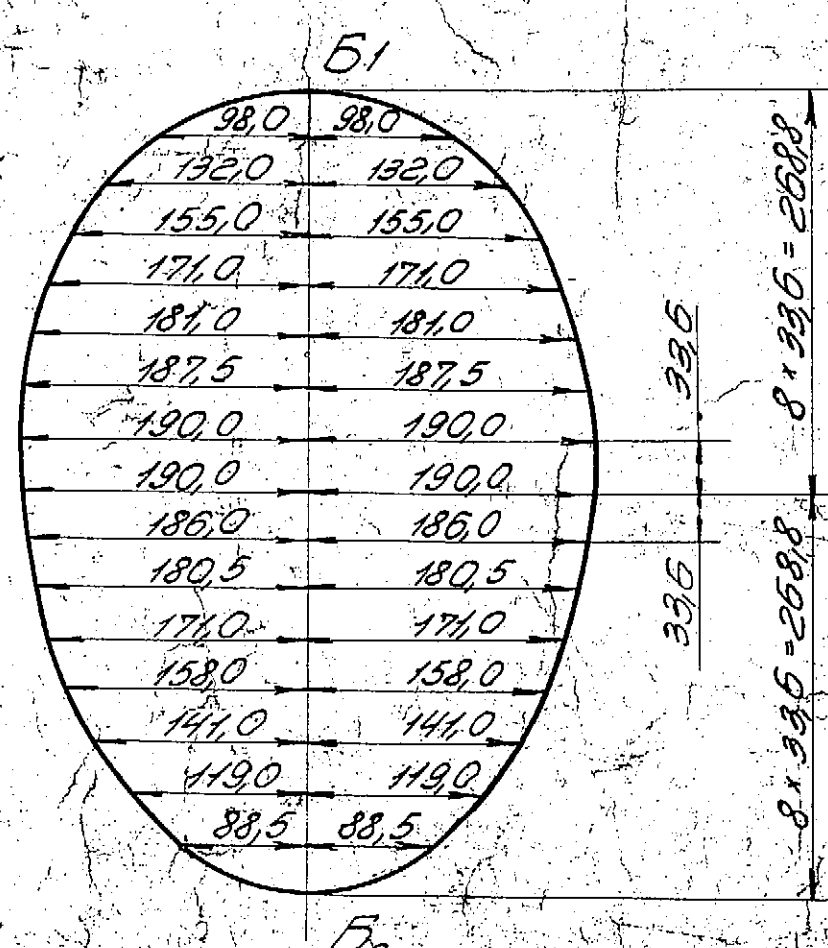 Б1
98,0 98,0
132,0 132,0
155,0 155,0
171,0 171,0
181,0 181,0
187,5 187,5
190,0 190,0
190,0 190,0
186,0 186,0
180,5 180,5
171,0 171,0
158,0 158,0
141,0 141,0
119,0 119,0
88,5 88,5
33,6
33,6
8 × 33,6 = 268,8
8 × 33,6 = 268,8